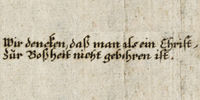 Wir dencken, daß man als ein Christ,
Zur Boßheit nicht gebohren ist.